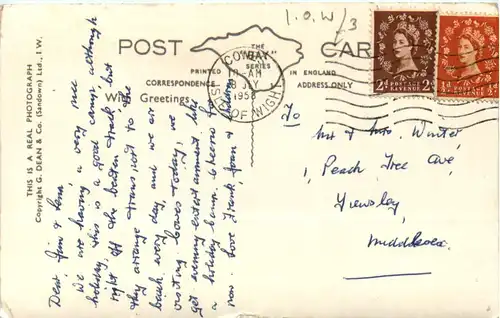 I.O.W/3
POST
CARD
THE
"BAY"
SERIES
PRINTED
IN ENGLAND
CORRESPONDENCE
ADDRESS ONLY
With Greetings
COWES
-AM
JLY
1958
ISLE OF WIGHT
POSTAGE
REVENUE
2d
2d
POSTAGE
REVENUE
½d
THIS IS A REAL PHOTOGRAPH
Copyright G. DEAN & Co. (Sandown) Ltd., I.W.
Dear Jim & Lena
We are having a very nice
holiday, this is a good camp, although
right off the beaten track, but
they arrange transport to the
beach every day, and we are
visiting Cowes today, we
get evening entertainment like
a holiday camp. Cheerio for
now. Love Frank, Joan &
To
Mr & Mrs. Winter,
1, Peach Tree Ave,
Yiewsley,
Middlesex.